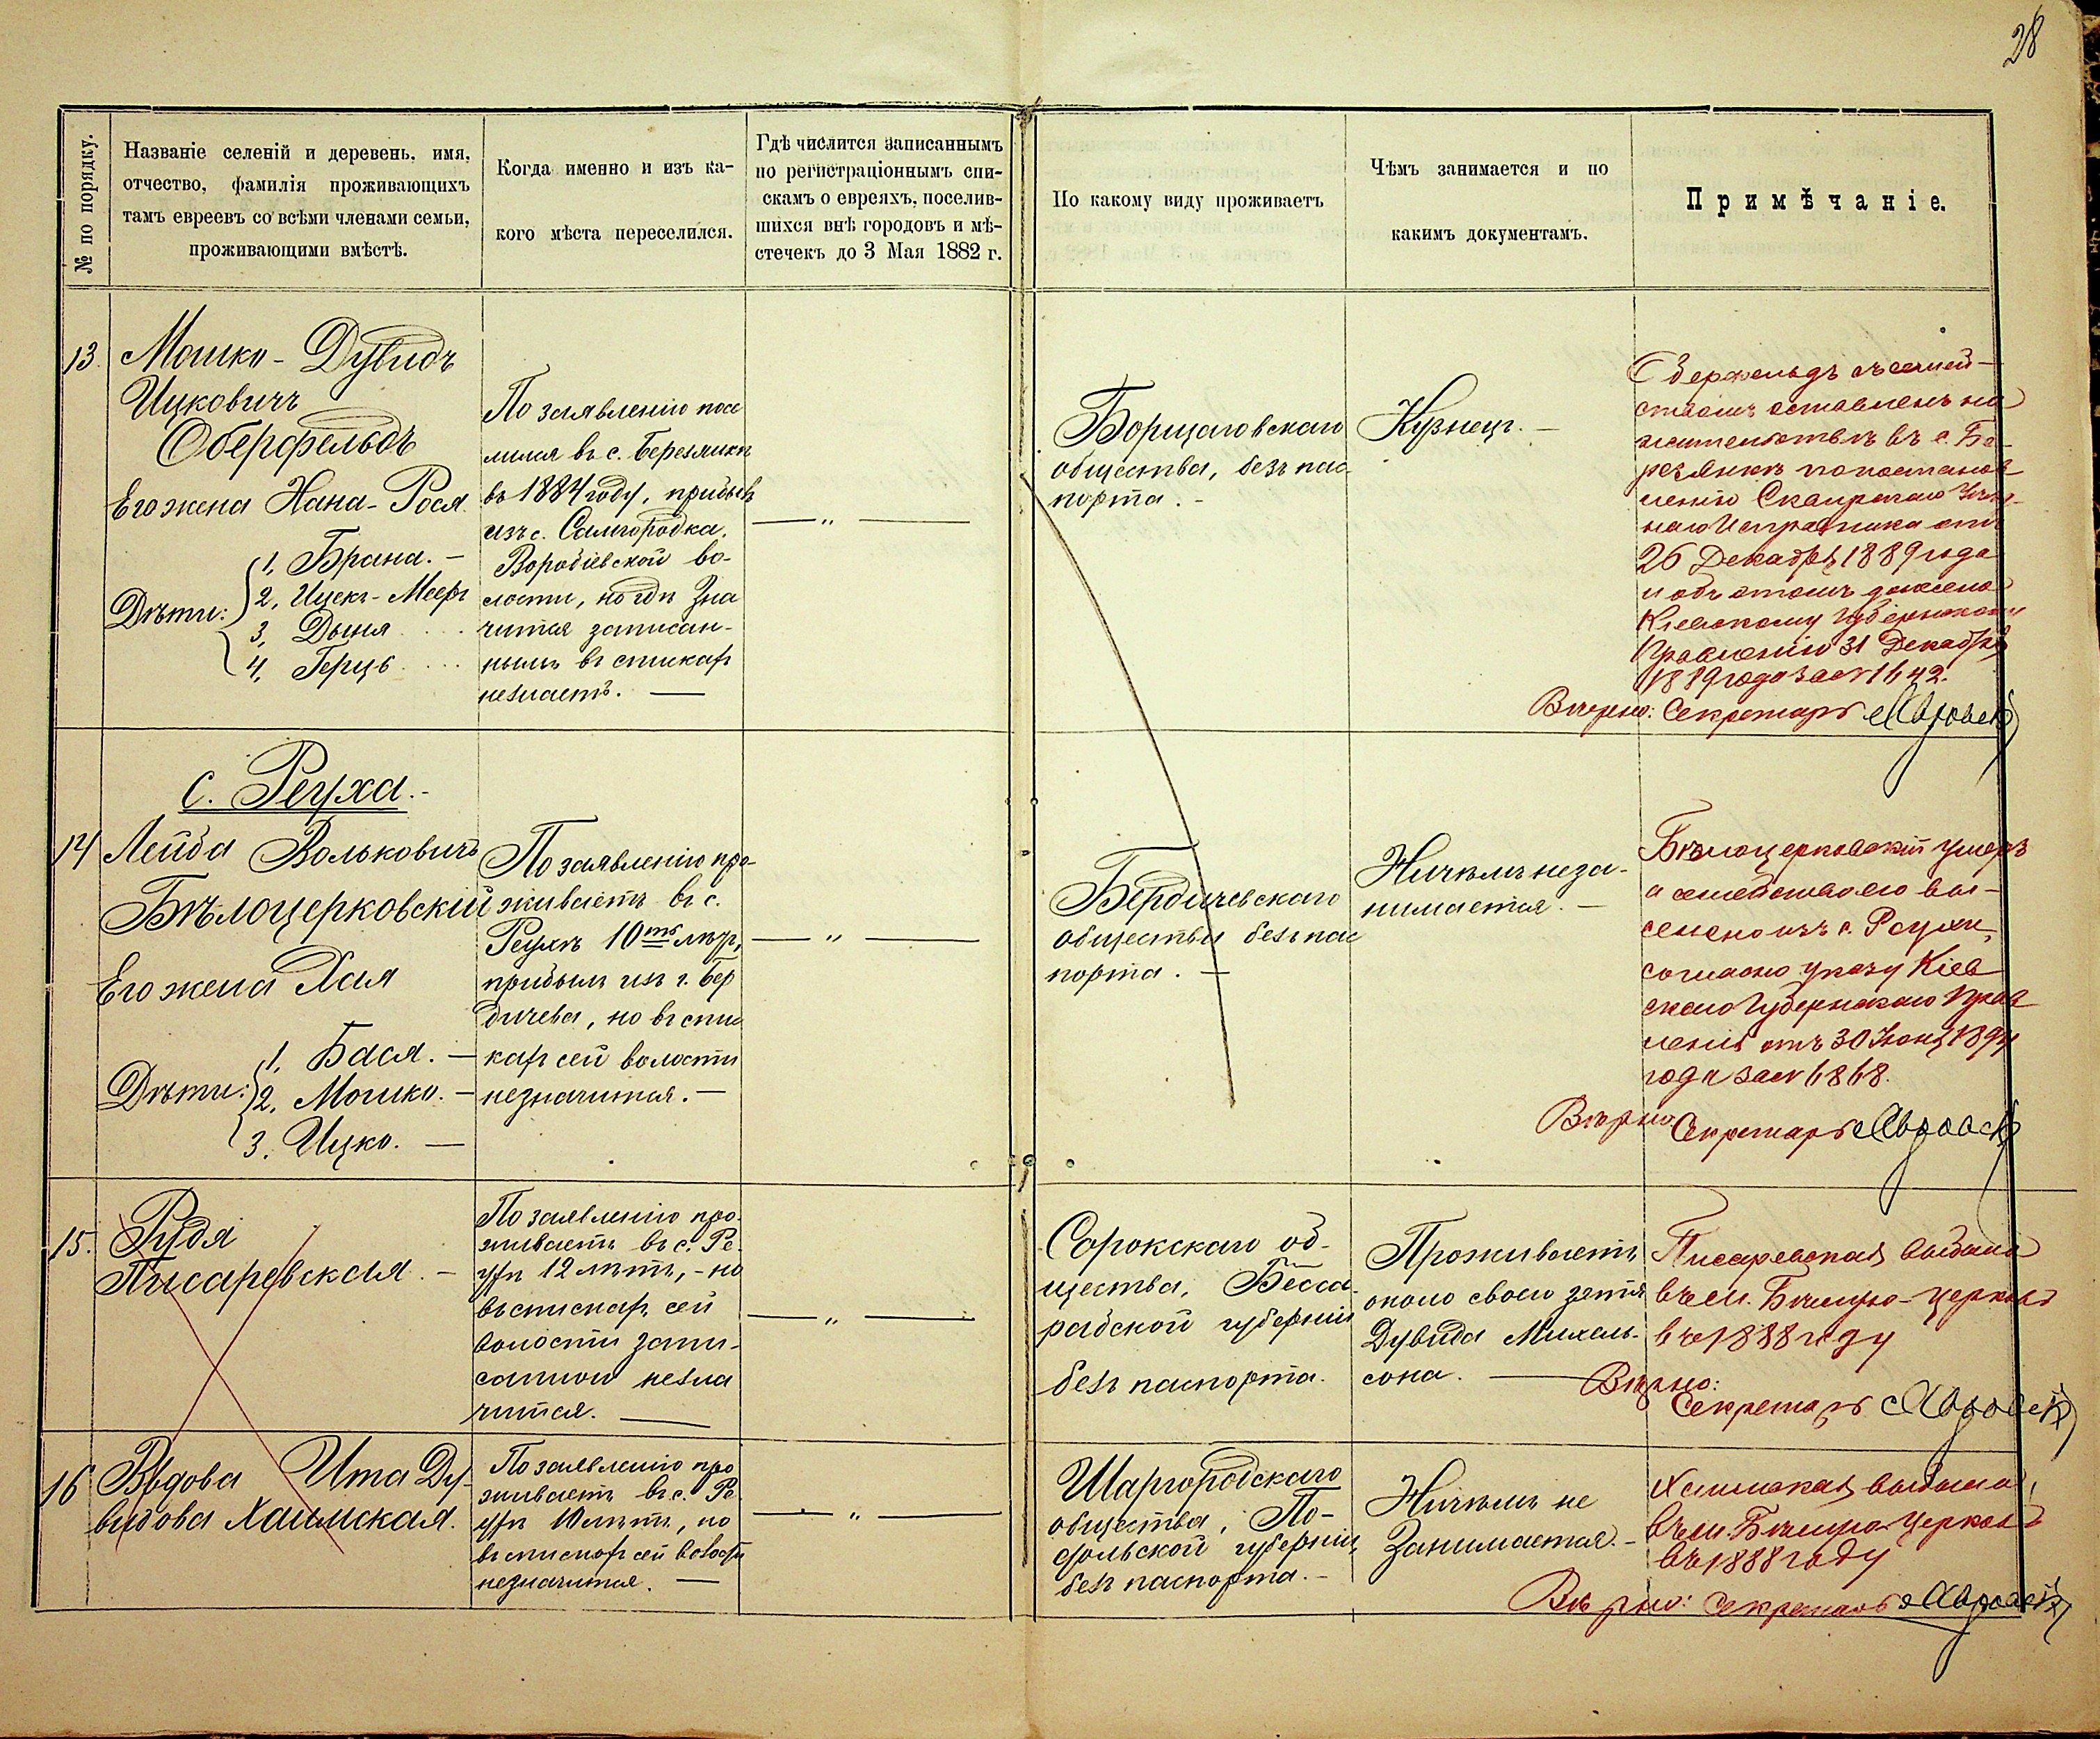 28
№ по порядку.
Названіе селеній и деревень, имя,
отчество, фамилія проживающихъ
тамъ евреевъ со всѣми членами семьи,
проживающими вмѣстѣ.
Когда именно и изъ ка-
кого мѣста переселился.
Гдѣ числится записаннымъ
по регистраціоннымъ спи-
скамъ о евреяхъ, поселив-
шихся внѣ городовъ и мѣ-
стечекъ до 3 Мая 1882 г.
По какому виду проживаетъ
Чѣмъ занимается и по
какимъ документамъ.
Примѣчаніе.
13.
Мошко-Дувидъ
Ицковичъ
Оберфельдъ
Его жена Хана-Рося.
Дѣти:
1, Брана. —
2, Ицекъ-Мееръ
3, Дыня
4, Герць
По заявленію посе
лился въ с. Березянкѣ
въ 1884 году, прибылъ
изъ с. Самгородка,
Воробіевской во-
лости, но гдѣ зна
чится записан-
нымъ въ спискахъ
незнаетъ. —
— „ —
Борщаговскаго
общества, безъ пас-
порта. -
Кузнецъ. —
Оберфельдъ съ семей-
ствомъ оставленъ на
жительствѣ въ с. Бе-
резянкѣ по постанов
ленію Сквирскаго Уѣзд-
наго Исправника отъ
26 Декабря 1889 года
и объ этомъ донесено
Кіевскому Губернскому
Правленію 31 Декабря
1889 года за № 1642.
Вѣрно: Секретарь
с. Реуха.-
14
Лейба Вольковичъ
Бѣлоцерковскій
Его жена Хая
Дѣти:
1, Бася. —
2, Мошко. —
3. Ицко. —
По заявленію про-
живаетъ въ с.
Реухѣ 10ть лѣтъ,
прибылъ изъ г. Бер
дичева, но въ спис
кахъ сей волости
незначится. —
— „ —
Бердичевскаго
общества безъ пас
порта. —
Ничѣмъ неза-
нимается. —
Бѣлоцерковскій умеръ
а семейство его выс-
селено изъ с. Реухи,
согласно указу Кіев
скаго Губернскаго Прав
ленія отъ 30 Іюня 1894
года за № 6868.
Вѣрно: Секретарь
15.
Рудя
Писаревская. —
По заявленію про-
живаетъ въ с. Ре-
ухѣ 12 лѣтъ, - но
въ спискахъ сей
волости запи-
санною незна
чится. —
— „ —
Сорокскаго об-
щества, Бесса-
рабской губерніи
безъ паспорта.
Проживаетъ
около своего зятя
Дувида Михель-
сона. —
Писаревская выбыла
въ м. Бѣлую-Церковь
въ 1888 году
Вѣрно:
Секретарь
16
Вдова Ита Ду-
видова Хаимская.
По заявленію про
живаетъ въ с. Ре
ухѣ 10 лѣтъ, но
въ спискахъ сей волости
незначится. —
— „ —
Шаргородскаго
общества, По-
дольской губерніи,
безъ паспорта. -
Ничѣмъ не
Занимается. -
Хаимская выбыла
въ м. Бѣлую Церковь
въ 1888 году
Вѣрно: Секретарь